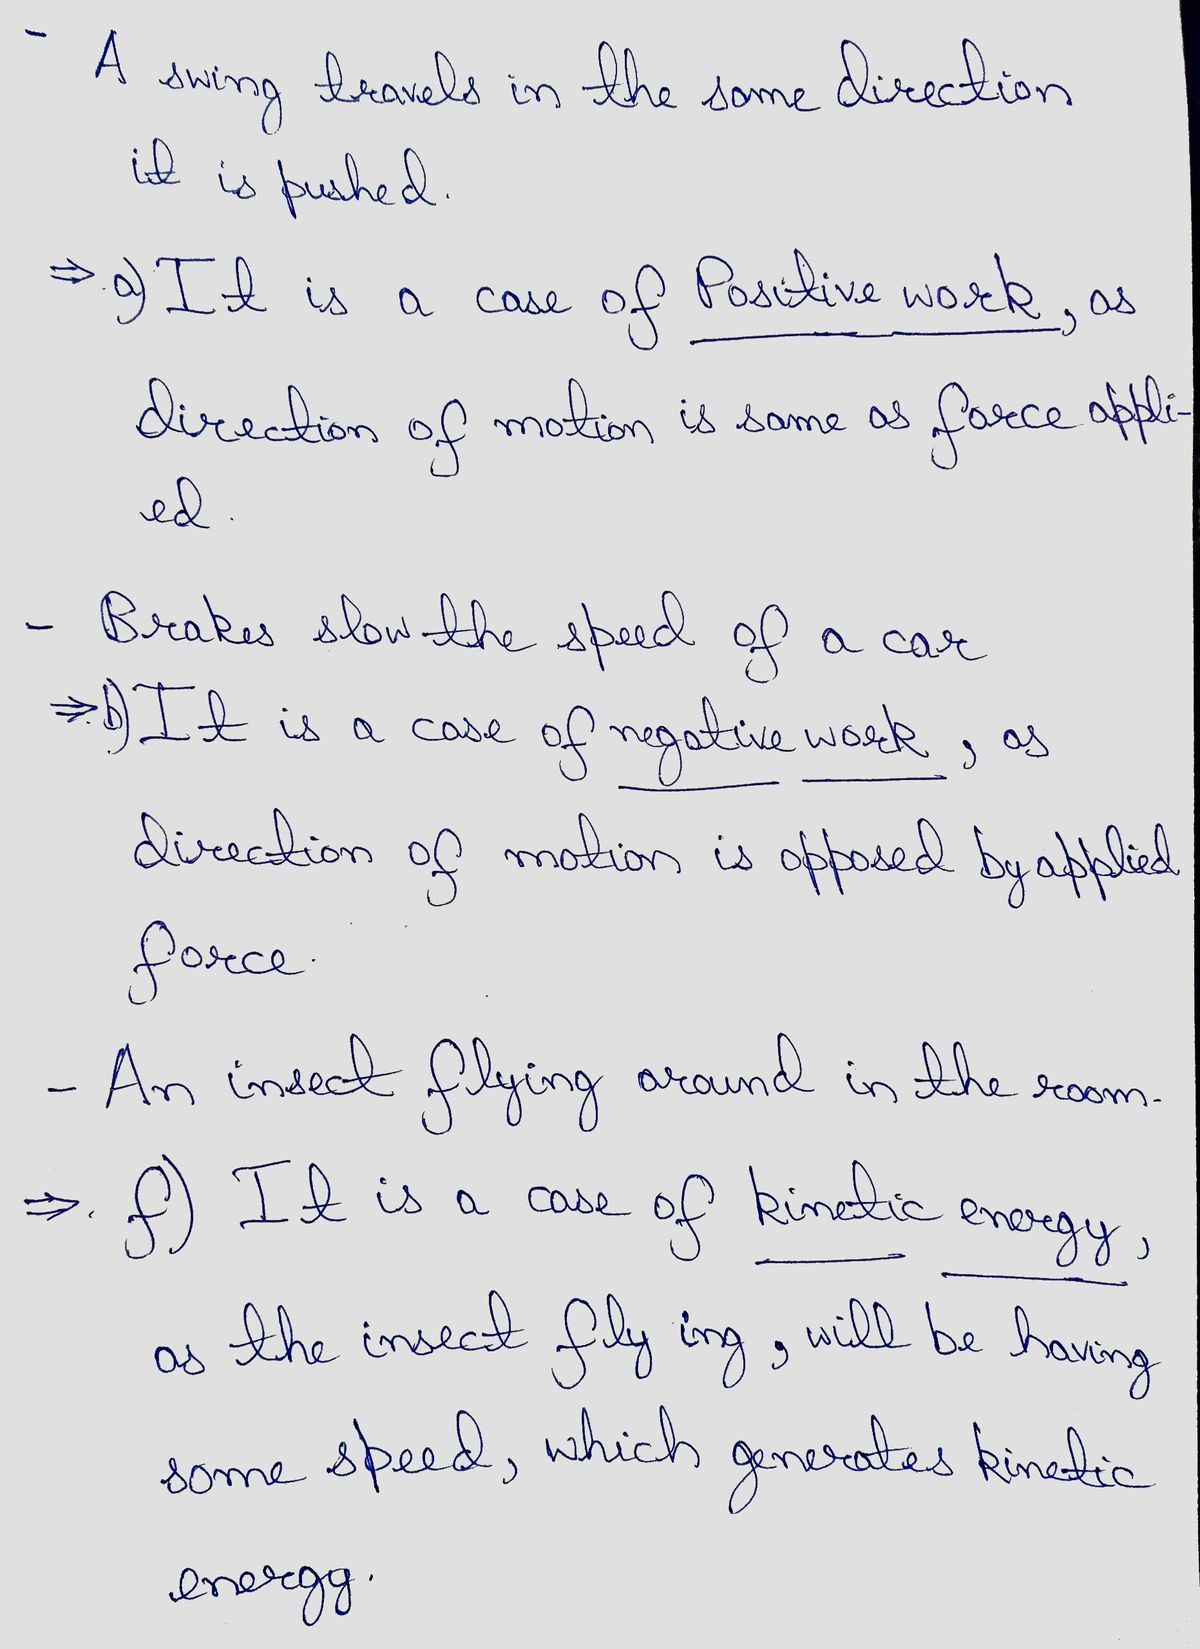 - A swing travels in the same direction
it is pushed.
⇒ a) It is a case of Positive work, as
direction of motion is same as force appli-
ed.
- Brakes slow the speed of a car
⇒ b) It is a case of negative work, as
direction of motion is opposed by applied
force.
- An insect flying around in the room.
⇒. f) It is a case of kinetic energy,
as the insect fly ing, will be having
some speed, which generates kinetic
energy.